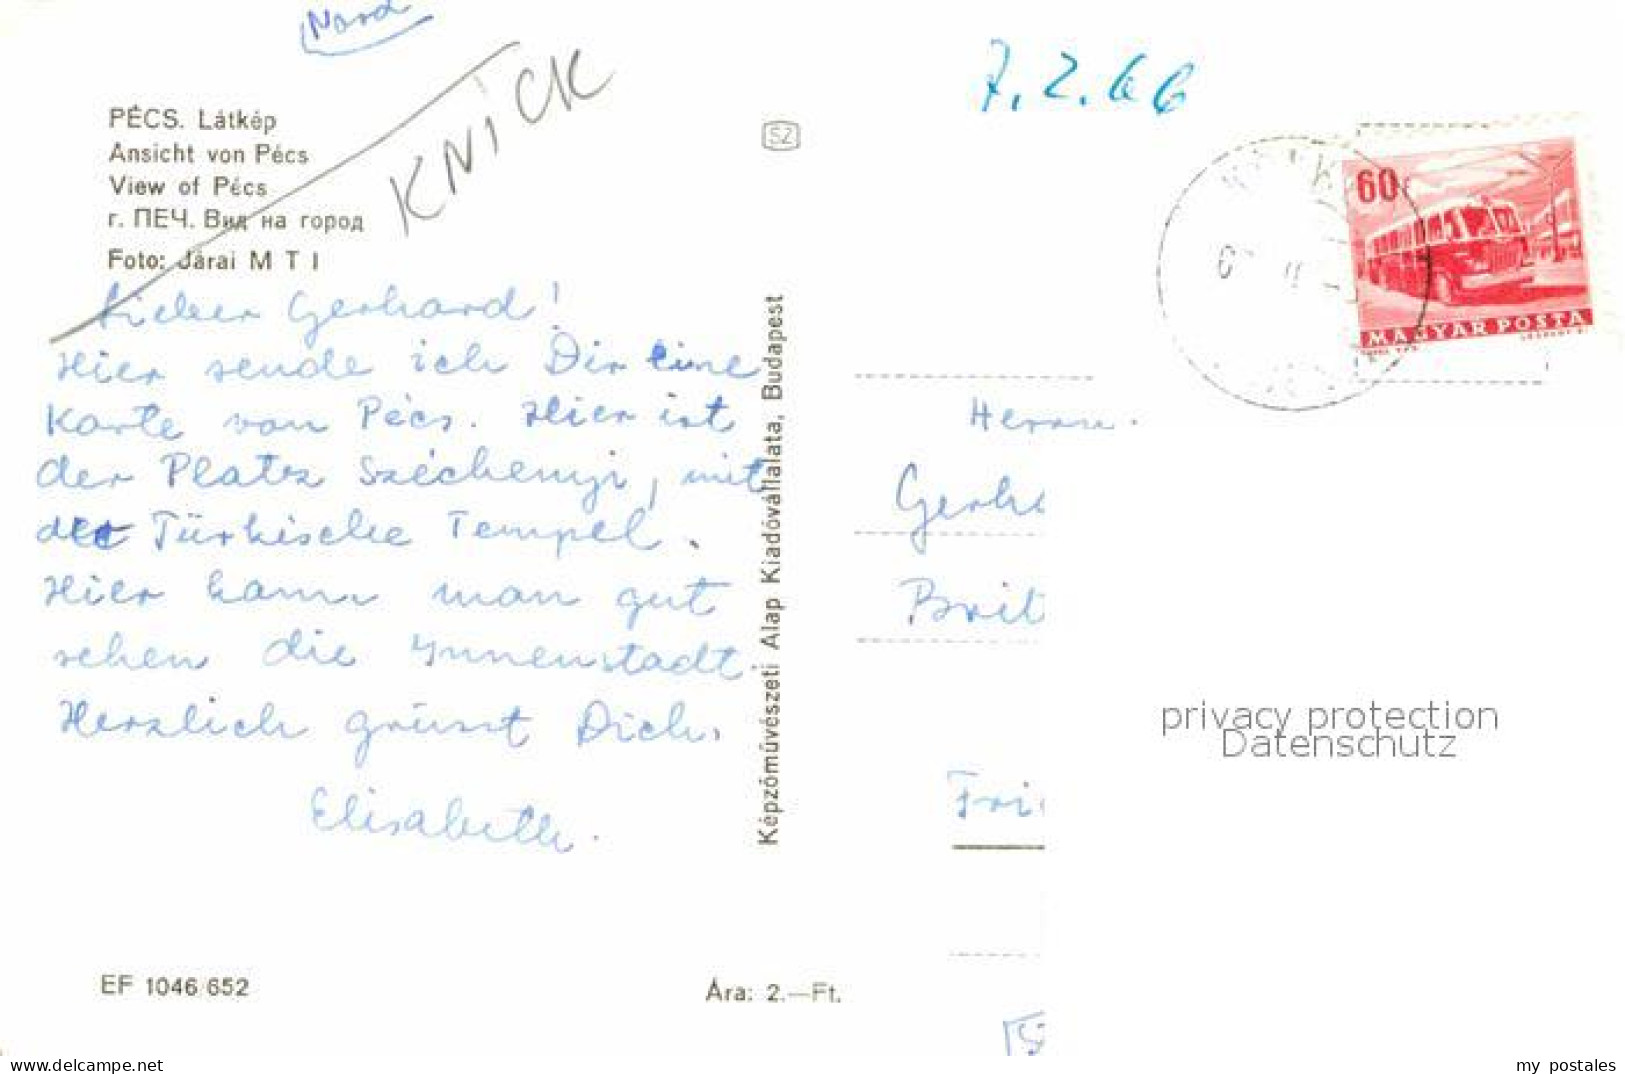 Nord
7.2.66
KNICK
PÉCS. Látkép
Ansicht von Pécs
View of Pécs
г. ПЕЧ. Вид на город
Foto: Járai M T I
SZ
60f
MAGYAR POSTA
Lieber Gerhard!
Hier sende ich Dir eine
Karte von Pécs. Hier ist
der Platz Széchenyi, mit
der Türkische Tempel.
Hier kann man gut
sehen die Innenstadt.
Herzlich grüsst Dich,
Elisabeth.
Képzőművészeti Alap Kiadóvállalata, Budapest
Herrn.
Gerh
Brit
Fri
privacy protection
Datenschutz
EF 1046/652
Ára: 2.—Ft.
delcampe.net
my_postales